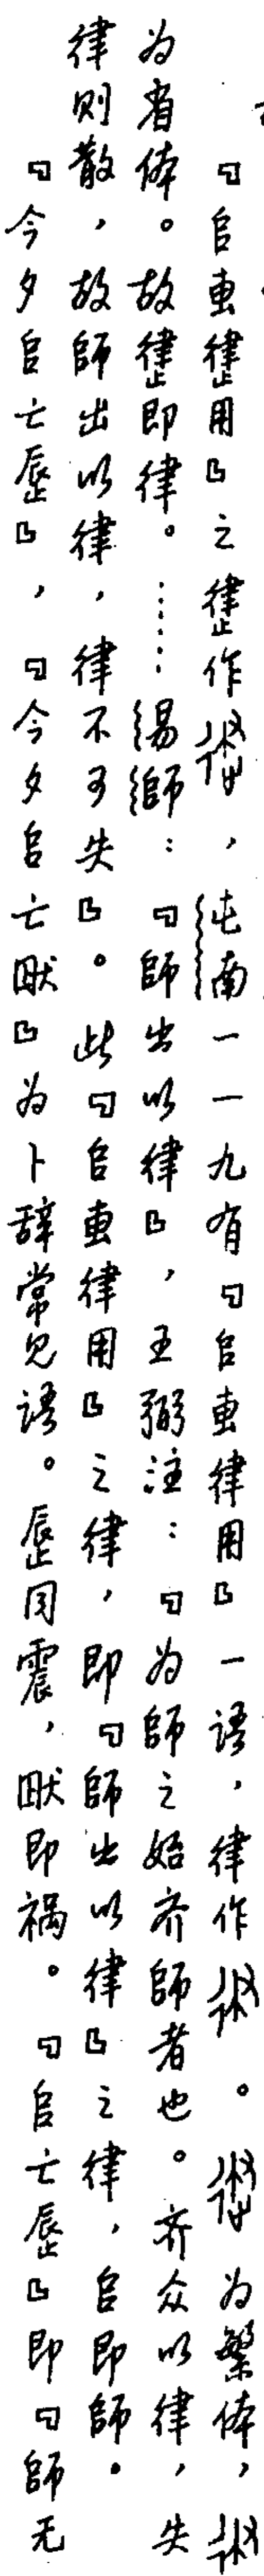 『𠂤叀𢕬用』之𢕬作，屯南一一九有『𠂤叀律用』一语，律作。为繁体，
为省体。故𢕬即律。……易師：『師出以律』，王弼注：『为師之始齐師者也。齐众以律，失
律则散，故師出以律，律不可失』。此『𠂤叀律用』之律，即『師出以律』之律，𠂤即師。
『今夕𠂤亡𠩺』，『今夕𠂤亡㕢』为卜辞常见语。同震，即祸。『𠂤亡』即『師无